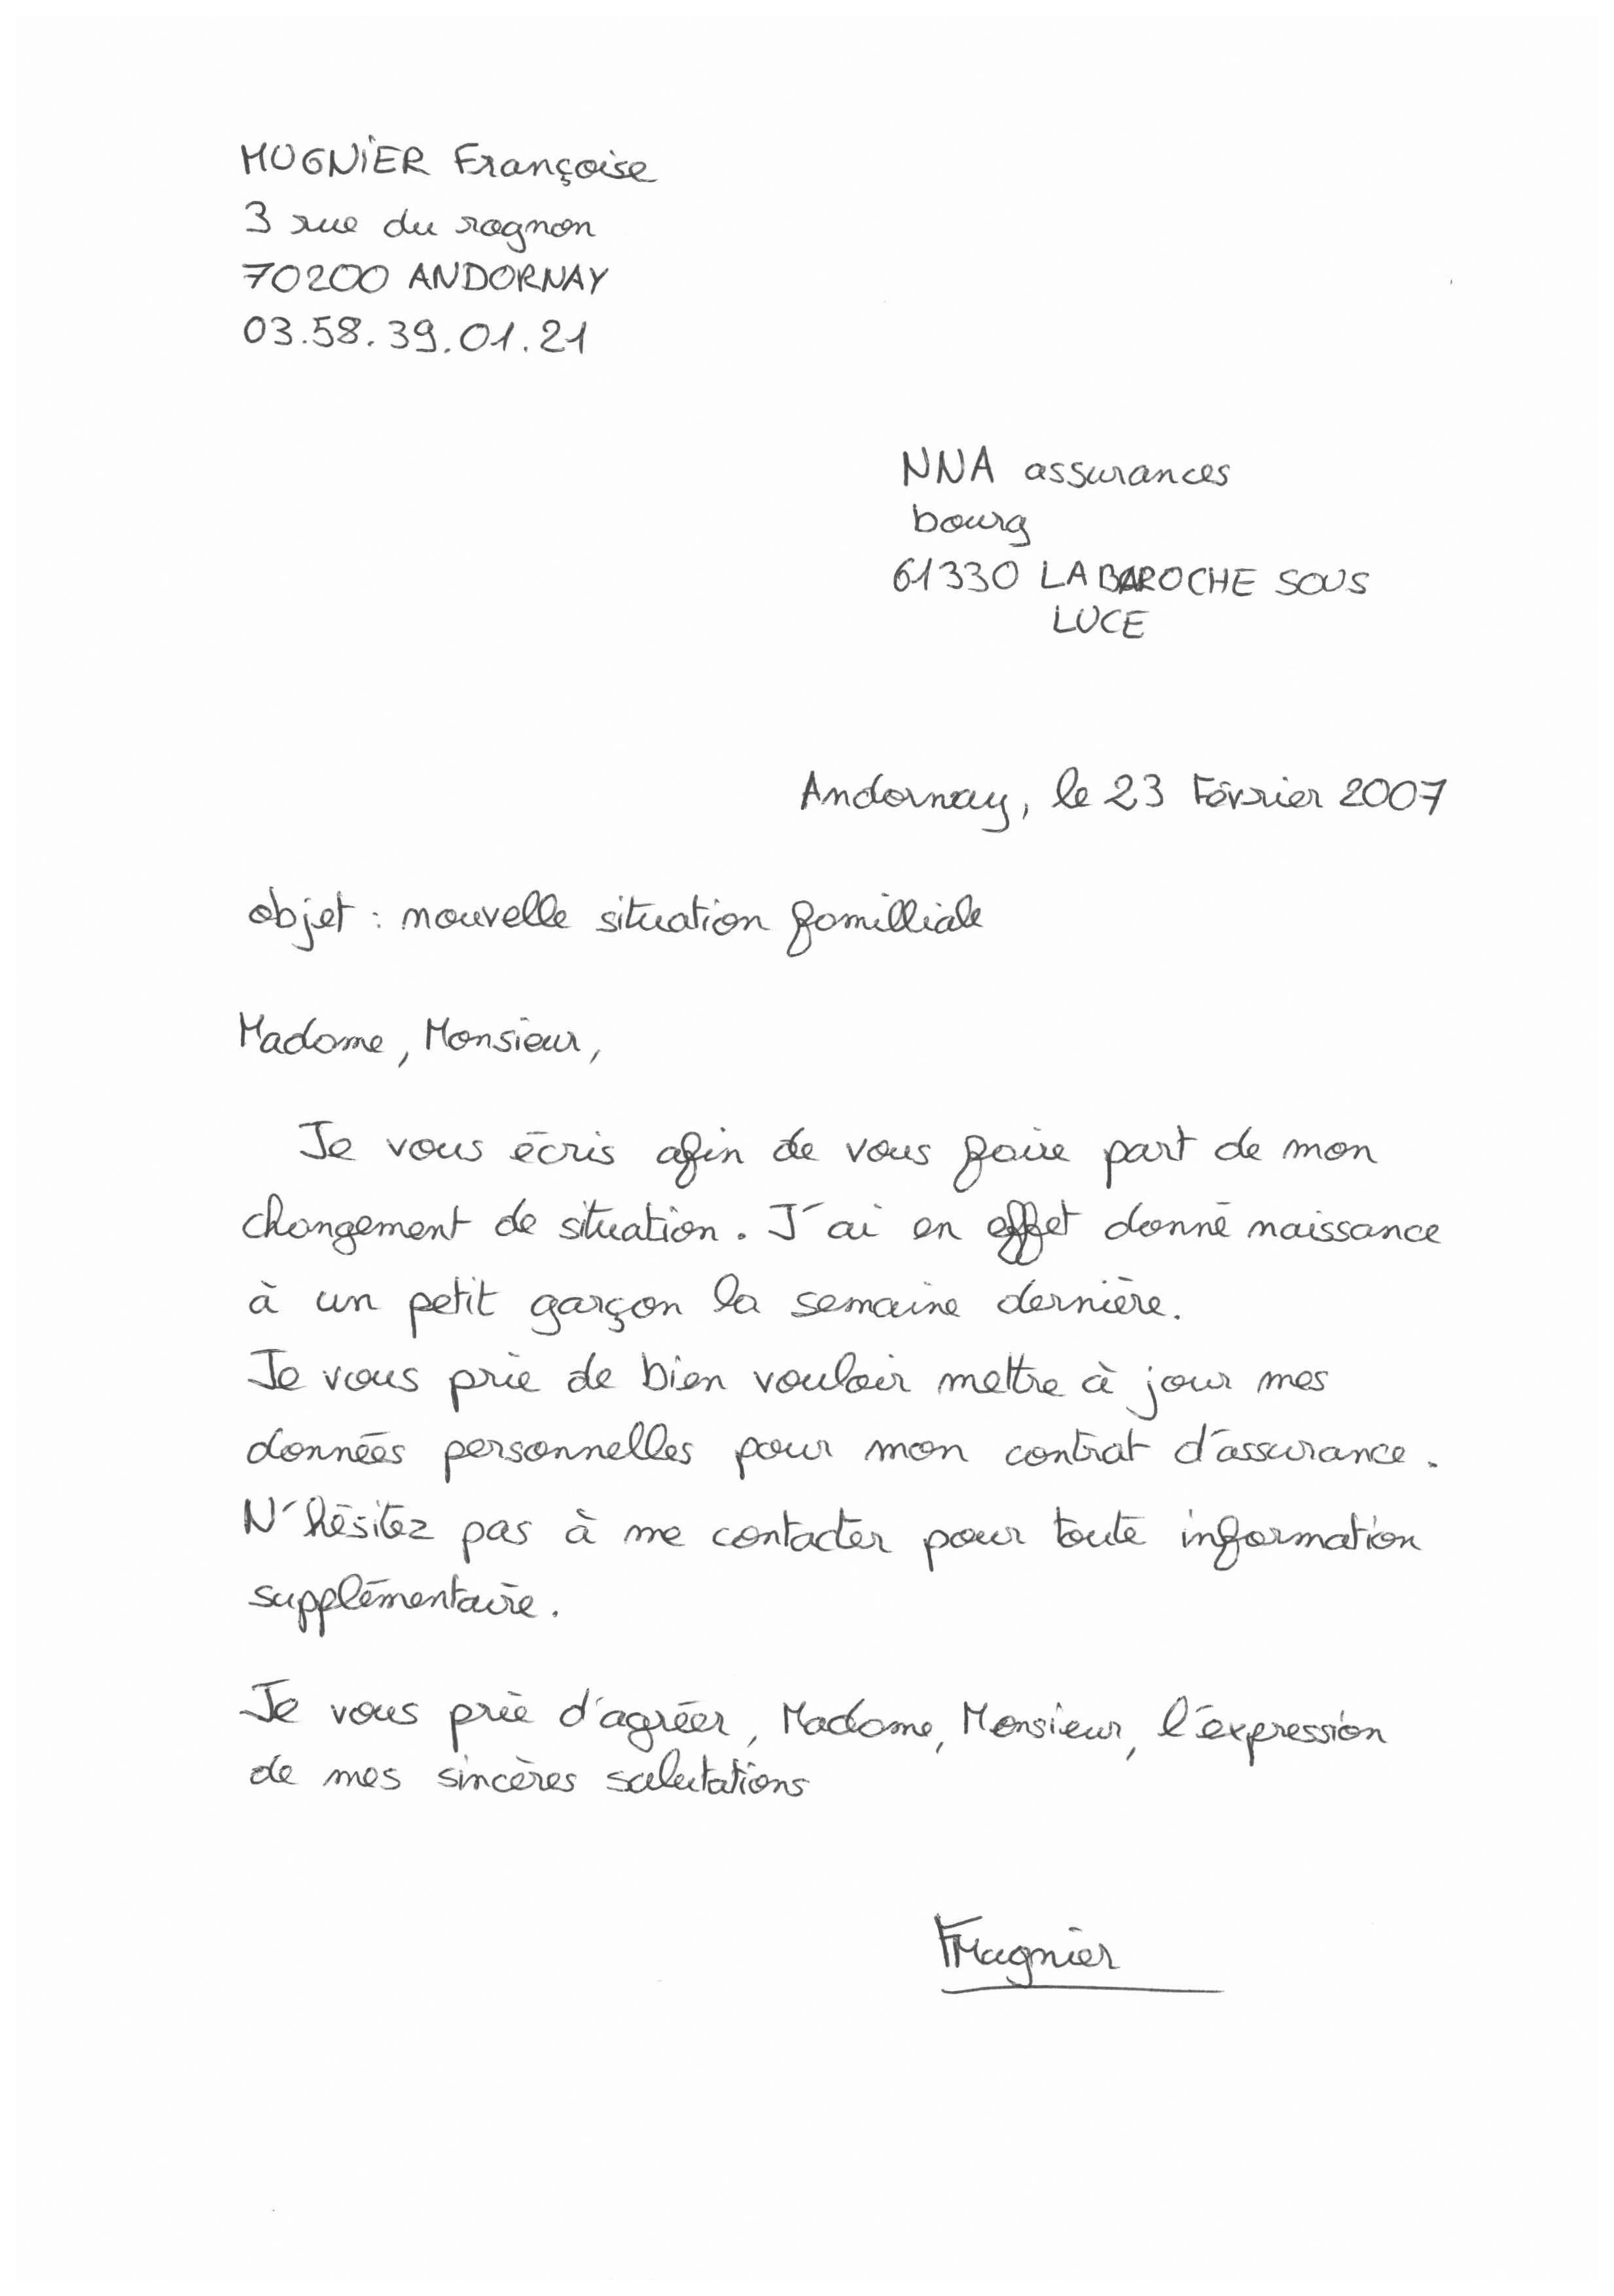 MUGNIER Françoise
3 rue du rognon
70200 ANDORNAY
03.58.39.01.21
NNA assurances
bourg
61330 LA BAROCHE SOUS
LUCE
Andornay, le 23 Février 2007
objet : nouvelle situation familliale
Madame, Monsieur,
Je vous écris afin de vous faire part de mon
changement de situation. J'ai en effet donné naissance
à un petit garçon la semaine dernière.
Je vous prie de bien vouloir mettre à jour mes
données personnelles pour mon contrat d'assurance.
N'hésitez pas à me contacter pour toute information
supplémentaire.
Je vous prie d'agréer, Madame, Monsieur, l'expression
de mes sincères salutations
FMugnier